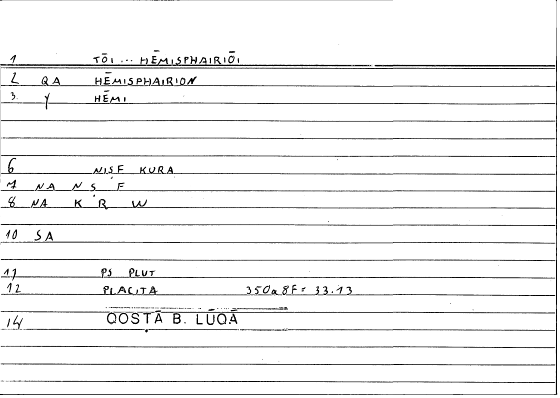 1 TŌI ... HĒMISPHAIRIŌI
2 QA HĒMISPHAIRION
3. Y HĒMI
6 NIṢF KURA
7 NA N Ṣ F
8 NA K R W
10 SA
11 PS PLUT
12 PLACITA 350a8F= 33.13
14 QOSṬĀ B. LŪQĀ